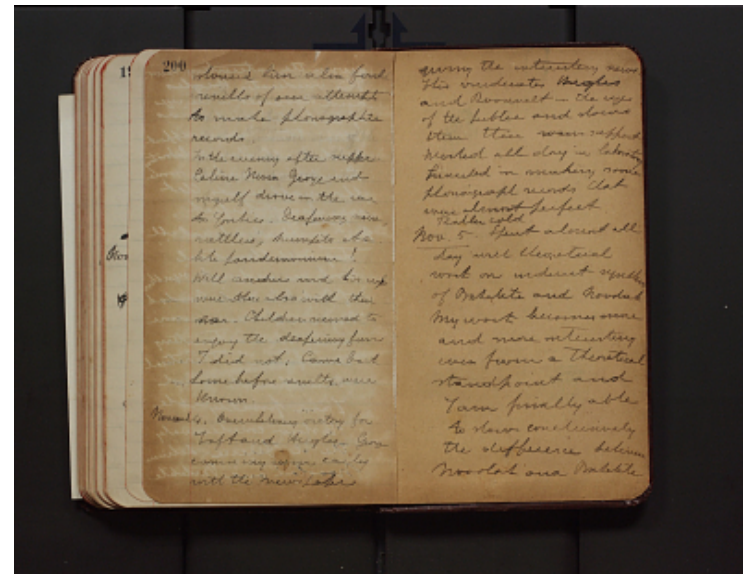 200
showed him also final
results of our attempt
to make phonographic
records.
In the evening after supper
Celine Nina George and
myself drove in the car
to Yonkers. Deafening noise
rattles, trumpets etc.
like pandemonium!
Will and his wife
were there also with their
car. Children seemed to
enjoy the deafening fun
I did not. Came back
home before results were
known.
November 4. Overwhelming victory for
Taft and Hughes. George
coming early
with the newspapers
giving the interesting news
This vindicates Hughes
and Roosevelt in the eyes
of the public and shows
them their warm support
Worked all day in laboratory
Succeeded in making some
phonograph records that
were almost perfect
Rather cold
Nov. 5. Spent almost all
day with theoretical
work on indirect synthesis
of Bakelite and Novolak
My work becomes more
and more interesting
even from a theoretical
standpoint and
I am finally able
to show conclusively
the difference between
Novolak and Bakelite